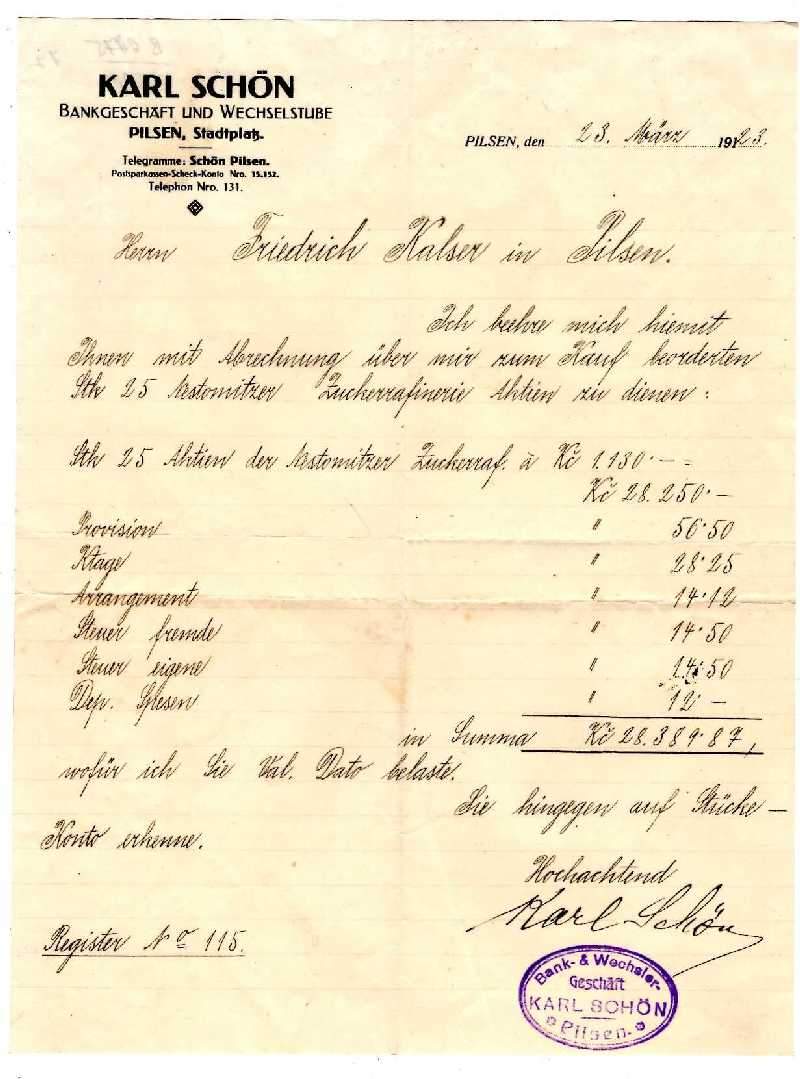 KARL SCHÖN
BANKGESCHÄFT UND WECHSELSTUBE
PILSEN, Stadtplatz.
Telegramme: Schön Pilsen.
Postsparkassen-Scheck-Konto Nro. 15.152.
Telephon Nro. 131.
PILSEN, den 23. März 1923.
Herrn Friedrich Kalser in Pilsen.
Ich beehre mich hiemit
Ihnen mit Abrechnung über mir zum Kauf beorderten
Stk 25 Nestomitzer Zuckerrafinerie Aktien zu dienen:
Stk 25 Aktien der Nestomitzer Zuckerraf. à Kč 1.130·— =
Kč 28.250·—
Provision " 56·50
Ktage " 28·25
Arrangement " 14·12
Steuer fremde " 14·50
Steuer eigene " 14·50
Dep. Spesen " 12·—
in Summa Kč 28.389·87,
wofür ich Sie Val. Dato belaste.
Sie hingegen auf Stücke—
Konto erkenne.
Hochachtend
Karl Schön
Register No 115.
Bank- & Wechsler-
Geschäft
KARL SCHÖN
Pilsen.